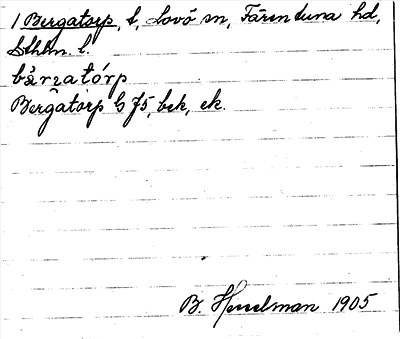 1 Bergatorp, t, Lovö sn, Färentuna hd,
Sthlm. l.
bärɪatórp
Bergatorp G 75, bek, ek.
B. Hesselman 1905